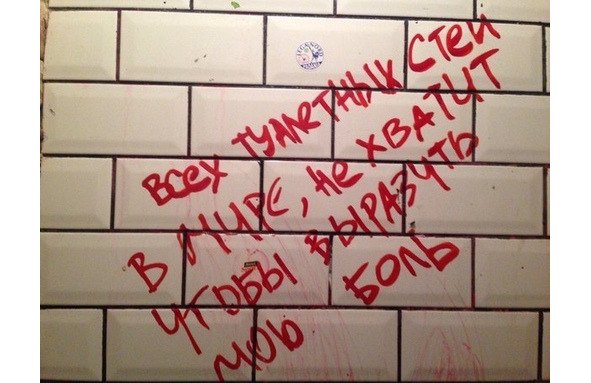 ВСЕХ ТУАЛЕТНЫХ СТЕН
В МИРЕ, НЕ ХВАТИТ
ЧТОБЫ ВЫРАЗИТЬ
МОЮ БОЛЬ